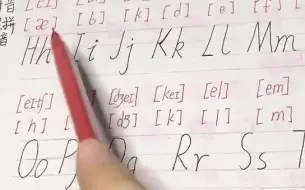 音
拼 [æ] [b] [k] [d] [e] [f]
音
Hh Ii Jj Kk Ll Mm
[eɪtʃ] [dʒeɪ] [keɪ] [el] [em]
[h] [dʒ] [k] [l] [m]
Oo Rr Ss T